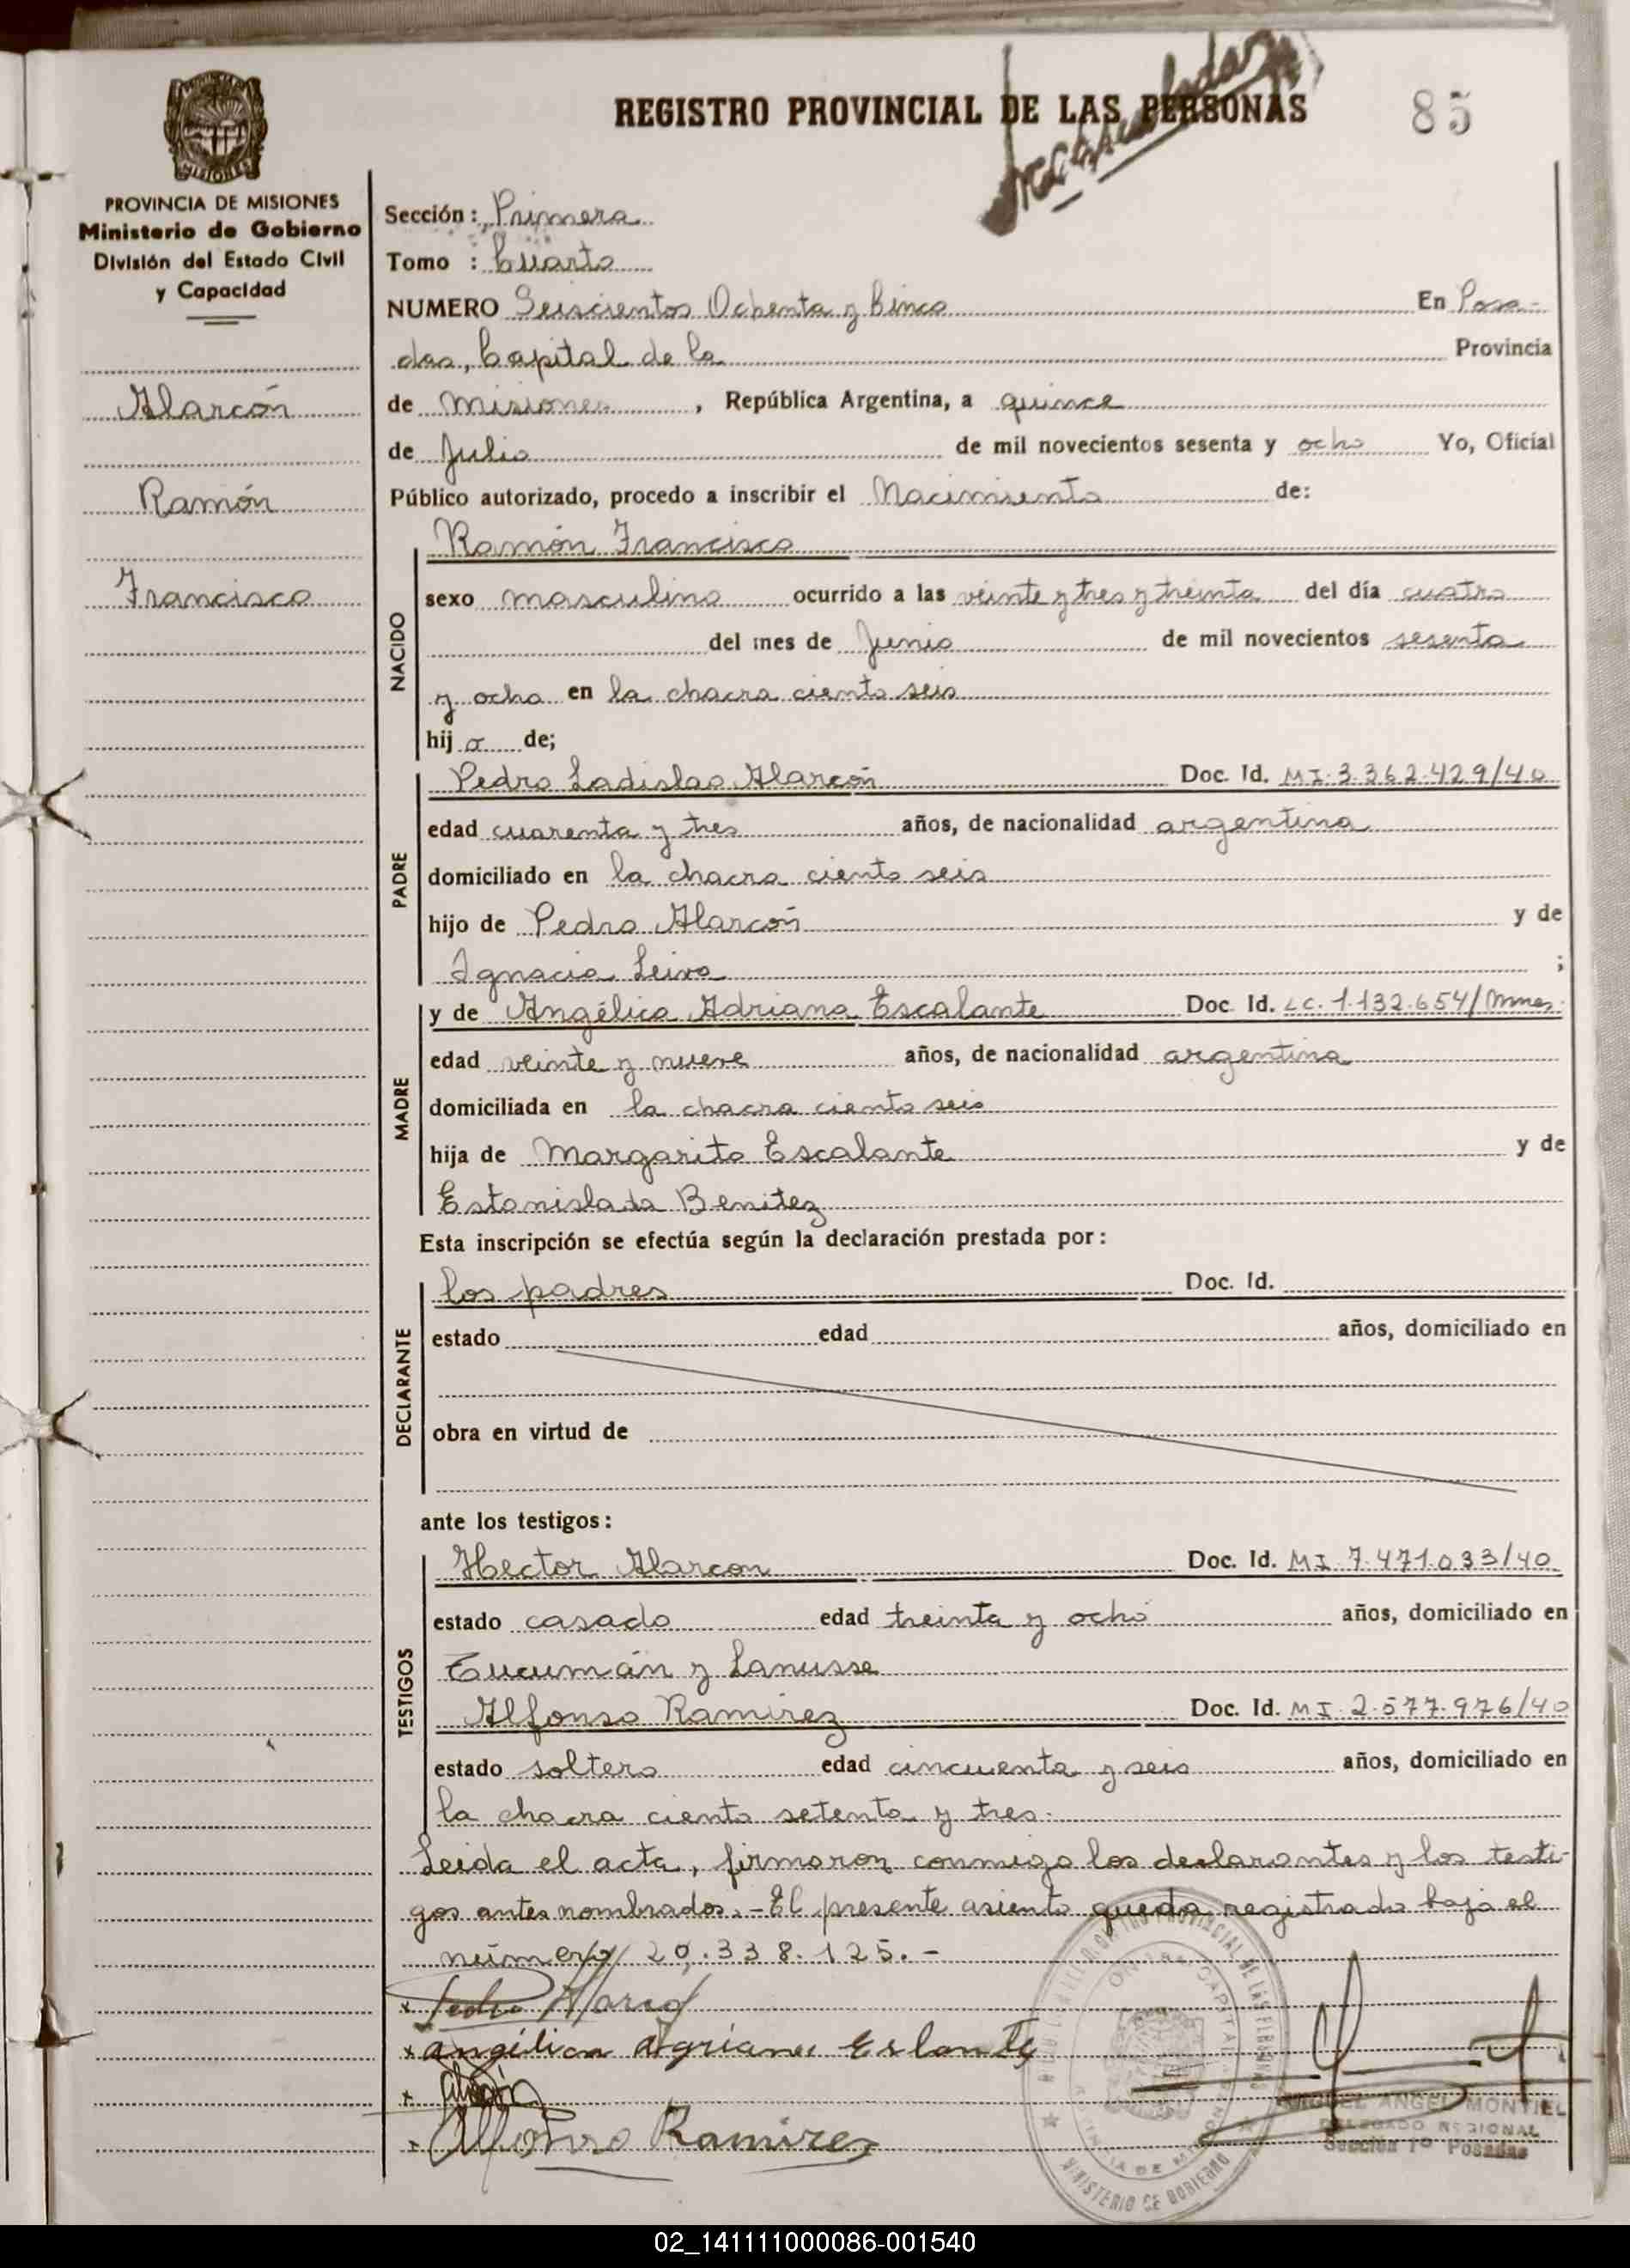 REGISTRO PROVINCIAL DE LAS PERSONAS
85
MISIONES
PROVINCIA DE MISIONES
Ministerio de Gobierno
División del Estado Civil
y Capacidad
Alarcón
Ramón
Francisco
Sección: Primera
Tomo : Cuarto
NUMERO Seiscientos Ochenta y Cinco En Posa-
das, Capital de la Provincia
de Misiones, República Argentina, a quince
de Julio de mil novecientos sesenta y ocho Yo, Oficial
Público autorizado, procedo a inscribir el Nacimiento de:
NACIDO
Ramón Francisco
sexo masculino ocurrido a las veinte y tres y treinta del día cuatro
del mes de Junio de mil novecientos sesenta
y ocho en la chacra ciento seis
hijo de;
PADRE
Pedro Ladislao Alarcón Doc. Id. MI. 3.362.429/40
edad cuarenta y tres años, de nacionalidad argentina
domiciliado en la chacra ciento seis
hijo de Pedro Alarcón y de
Ignacia Leiva ;
MADRE
y de Angélica Adriana Escalante Doc. Id. LC. 1.132.654/Mnes.
edad veinte y nueve años, de nacionalidad argentina
domiciliada en la chacra ciento seis
hija de Margarito Escalante y de
Estanislada Benitez
Esta inscripción se efectúa según la declaración prestada por:
DECLARANTE
los padres Doc. Id.
estado edad años, domiciliado en
obra en virtud de
ante los testigos:
TESTIGOS
Hector Alarcon Doc. Id. MI 7.471.033/40
estado casado edad treinta y ocho años, domiciliado en
Tucumán y Lanusse
Alfonso Ramirez Doc. Id. MI. 2.577.976/40
estado soltero edad cincuenta y seis años, domiciliado en
la chacra ciento setenta y tres.
Leida el acta, firmaron conmigo los declarantes y los testi-
gos antes nombrados.- El presente asiento queda registrado bajo el
número 20.338.125.-
x Pedro Alarcó
x angélica Adriana Eslante
x
x Alfonso Ramirez
MINISTERIO DE GOBIERNO
MIGUEL ANGEL MONTIEL
DELEGADO REGIONAL
Sección 1º Posadas
02_141111000086-001540